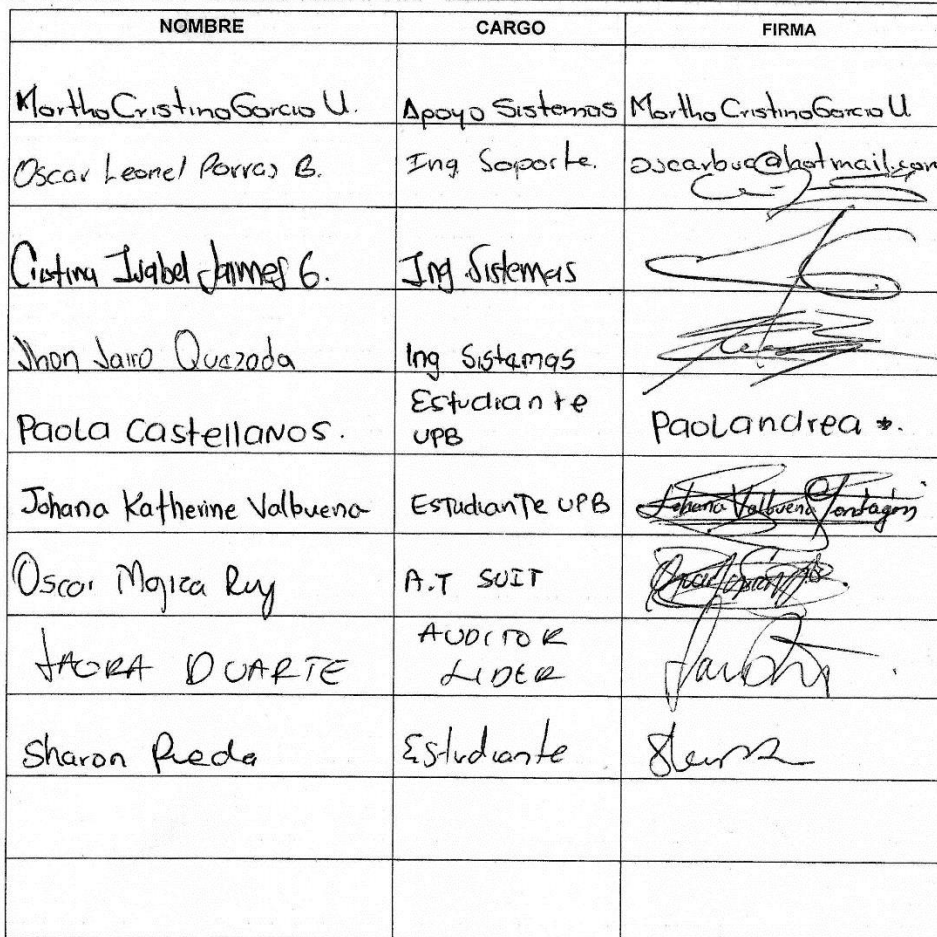 NOMBRE CARGO FIRMA
Martha Cristina Garcia U. Apoyo Sistemas Martha Cristina Garcia U.
Oscar Leonel Porras B. Ing Soporte. oscarbuc@hotmail.com
Cristina Isabel Jaimes G. Ing Sistemas
Jhon Jairo Quezada Ing Sistemas
Estudiante
Paola Castellanos. UPB Paolandrea *.
Johana Katherine Valbuena Estudiante UPB Johana Valbuena
Oscar Mojica A.T SUIT
AUDITOR
DUARTE LIDER
Sharon Estudiante